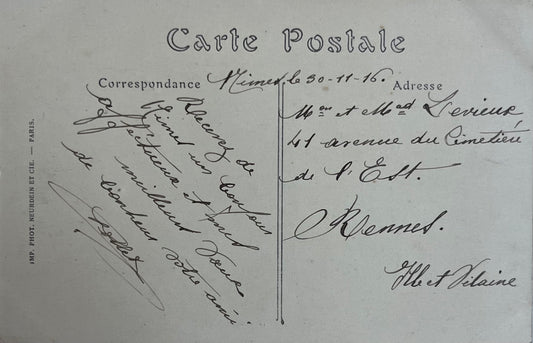 Carte Postale
Correspondance
Nimes, le 30-11-16.
Adresse
Recevez de
Nimes un bonjour
affectueux et mes
meilleurs vœux
de bonheur votre ami
Mr et Mad Levieux
41 avenue du Cimetière
de l'Est.
Rennes.
Ille et Vilaine
IMP. PHOT. NEURDEIN ET CIE. — PARIS.